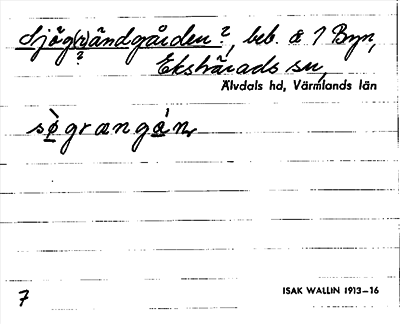 Sjög(r)ändgården ?, beb. å 1 Byn,
?
Ekshärads sn,
Älvdals hd, Värmlands län
sø̀grangán
7
ISAK WALLIN 1913–16